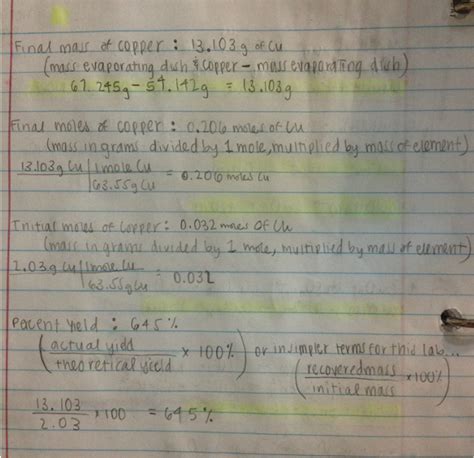 Final mass of copper : 13.103g of Cu
(mass evaporating dish & copper - mass evaporating dish)
67.245g - 54.142g = 13.103g
Final moles of copper : 0.206 moles of Cu
(mass in grams divided by 1 mole, multiplied by mass of element)
13.103g Cu | 1 mole Cu
63.55g Cu = 0.206 moles Cu
Initial moles of copper : 0.032 moles of Cu
(mass in grams divided by 1 mole, multiplied by mass of element)
2.03g Cu | 1 mole Cu
63.55g Cu = 0.032
Pecent Yield : 645%
(actual yield / theoretical yield × 100%) or in simpler terms for this lab...
(recovered mass / initial mass × 100%)
13.103 / 2.03 × 100 = 645%